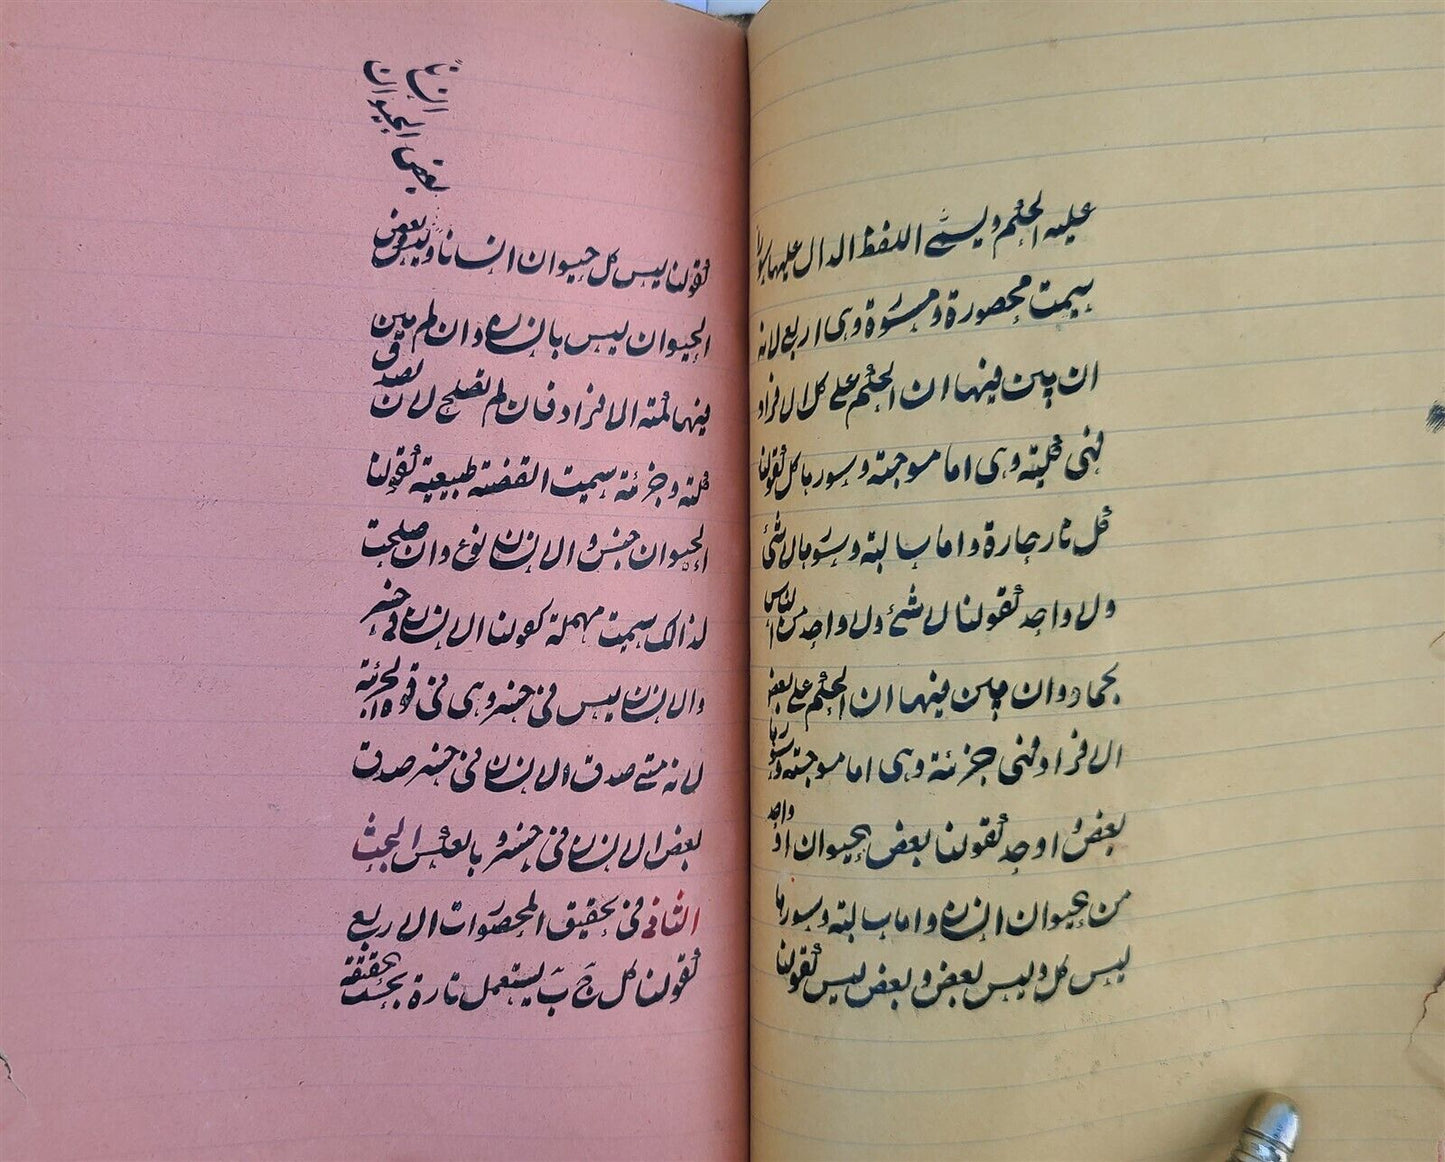 عليه الحكم ويسمى اللفظ الدال عليها سورا
سميت محصورة ومسورة وهى اربع لانه
ان بين فيها ان الحكم على كل الافراد
فهى كلية وهى اما موجبة وسورها كل كقولنا
كل نار حارة واما سالبة وسورها لا شئ
ولا واحد كقولنا لا شئ ولا واحد من الناس
بجماد وان بين فيها ان الحكم على بعض
الافراد فهى جزئية وهى اما موجبة وسورها
بعض او واحد كقولنا بعض الحيوان او واحد
من الحيوان انسان واما سالبة وسورها
ليس كل وليس بعض وبعض ليس كقولنا
بعض الحيوان
كقولنا ليس كل حيوان انسانا وليس بعض
الحيوان ليس بانسان وان لم يبين
فيها كمية الافراد فان لم تصلح لان تصدق
كلية وجزئية سميت القضية طبيعية كقولنا
الحيوان جنس والانسان نوع وان صلحت
لذالك سميت مهملة كقولنا الانسان فى خسر
والانسان ليس فى خسر وهى فى قوة الجزئية
لانه متى صدق الانسان فى خسر صدق
بعض الانسان فى خسر وبالعكس البحث
الثانى فى تحقيق المحصورات الاربع
كقولنا كل ج ب يستعمل تارة بحسب الحقيقة